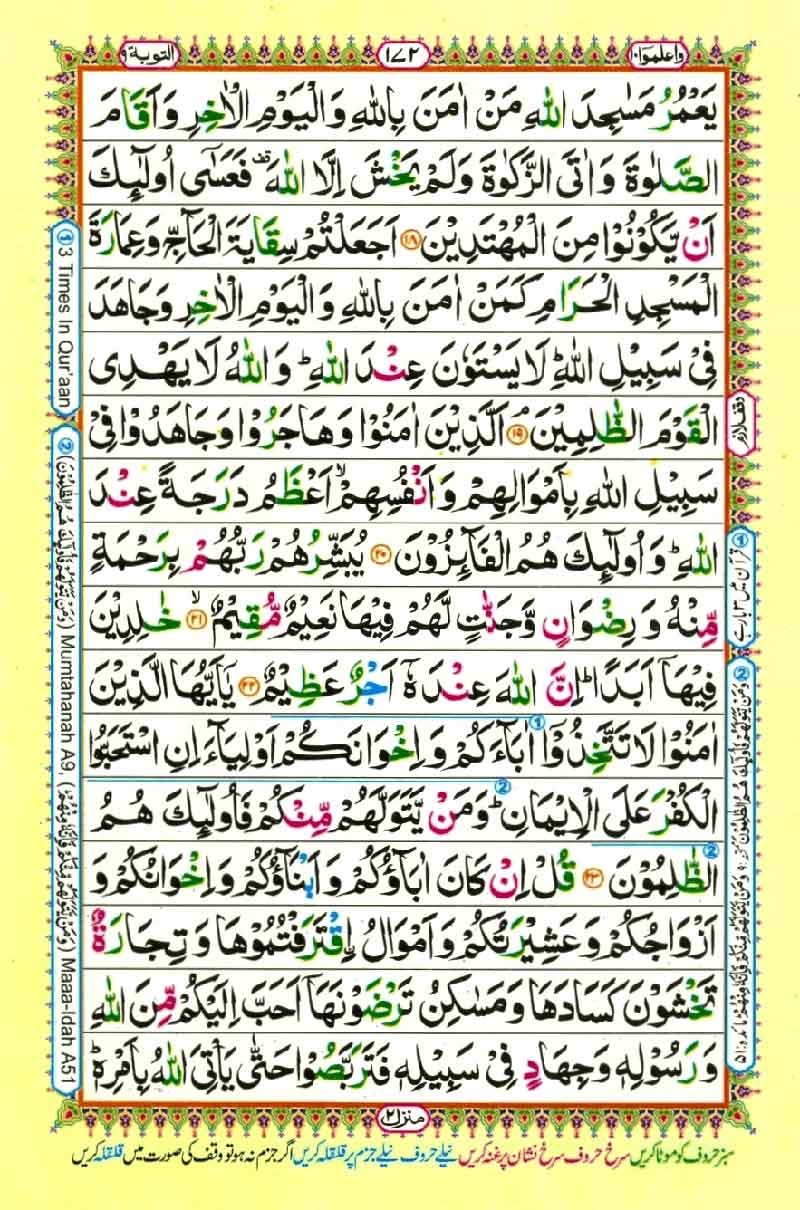 واعلموا ١٠
١٧٢
التوبة ٩
يَعْمُرُ مَسٰجِدَ اللّٰهِ مَنْ اٰمَنَ بِاللّٰهِ وَالْيَوْمِ الْاٰخِرِ وَاَقَامَ
الصَّلٰوةَ وَاٰتَى الزَّكٰوةَ وَلَمْ يَخْشَ اِلَّا اللّٰهَ ۫ فَعَسٰۤى اُولٰٓئِكَ
اَنْ يَّكُوْنُوْا مِنَ الْمُهْتَدِيْنَ ۝١٨ اَجَعَلْتُمْ سِقَايَةَ الْحَآجِّ وَعِمَارَةَ
الْمَسْجِدِ الْحَرَامِ كَمَنْ اٰمَنَ بِاللّٰهِ وَالْيَوْمِ الْاٰخِرِ وَجَاهَدَ
فِيْ سَبِيْلِ اللّٰهِ ؕ لَا يَسْتَوٗنَ عِنْدَ اللّٰهِ ؕ وَاللّٰهُ لَا يَهْدِى
الْقَوْمَ الظّٰلِمِيْنَ ۝١٩ اَلَّذِيْنَ اٰمَنُوْا وَهَاجَرُوْا وَجَاهَدُوْا فِيْ
سَبِيْلِ اللّٰهِ بِاَمْوَالِهِمْ وَاَنْفُسِهِمْ ۙ اَعْظَمُ دَرَجَةً عِنْدَ
اللّٰهِ ؕ وَاُولٰٓئِكَ هُمُ الْفَآئِزُوْنَ ۝٢٠ يُبَشِّرُهُمْ رَبُّهُمْ بِرَحْمَةٍ
مِّنْهُ وَرِضْوَانٍ وَّجَنّٰتٍ لَّهُمْ فِيْهَا نَعِيْمٌ مُّقِيْمٌ ۙ۝٢١ خٰلِدِيْنَ
فِيْهَاۤ اَبَدًا ؕ اِنَّ اللّٰهَ عِنْدَهٗۤ اَجْرٌ عَظِيْمٌ ۝٢٢ يٰۤاَيُّهَا الَّذِيْنَ
اٰمَنُوْا لَا تَتَّخِذُوْۤا اٰبَآءَكُمْ وَاِخْوَانَكُمْ اَوْلِيَآءَ اِنِ اسْتَحَبُّوا
الْكُفْرَ عَلَى الْاِيْمَانِ ؕ وَمَنْ يَّتَوَلَّهُمْ مِّنْكُمْ فَاُولٰٓئِكَ هُمُ
الظّٰلِمُوْنَ ۝٢٣ قُلْ اِنْ كَانَ اٰبَآؤُكُمْ وَاَبْنَآؤُكُمْ وَاِخْوَانُكُمْ وَ
اَزْوَاجُكُمْ وَعَشِيْرَتُكُمْ وَاَمْوَالُ ۨاقْتَرَفْتُمُوْهَا وَتِجَارَةٌ
تَخْشَوْنَ كَسَادَهَا وَمَسٰكِنُ تَرْضَوْنَهَاۤ اَحَبَّ اِلَيْكُمْ مِّنَ اللّٰهِ
وَرَسُوْلِهٖ وَجِهَادٍ فِيْ سَبِيْلِهٖ فَتَرَبَّصُوْا حَتّٰى يَاْتِيَ اللّٰهُ بِاَمْرِهٖ ؕ
وقف لازم
① قرآن میں ۳ بار ہے
② وَمَنْ يَّتَوَلَّهُمْ فَاُولٰٓئِكَ هُمُ الظّٰلِمُوْنَ
وَمَنْ يَّتَوَلَّهُمْ مِّنْكُمْ فَاِنَّهٗ مِنْهُمْ مائدہ: ۵۱
① 3 Times In Qur'aan
② (وَمَنْ يَّتَوَلَّهُمْ فَاُولٰٓئِكَ هُمُ الظّٰلِمُوْنَ) Mumtahanah A9, (وَمَنْ يَّتَوَلَّهُمْ مِّنْكُمْ فَاِنَّهٗ مِنْهُمْ) Maaa-Idah A51
منزل ٢
سبز حروف کو موٹا کریں سرخ حروف سرخ نشان پر غنہ کریں نیلے حروف نیلے جزم پر قلقلہ کریں اگر جزم نہ ہو تو وقف کی صورت میں قلقلہ کریں